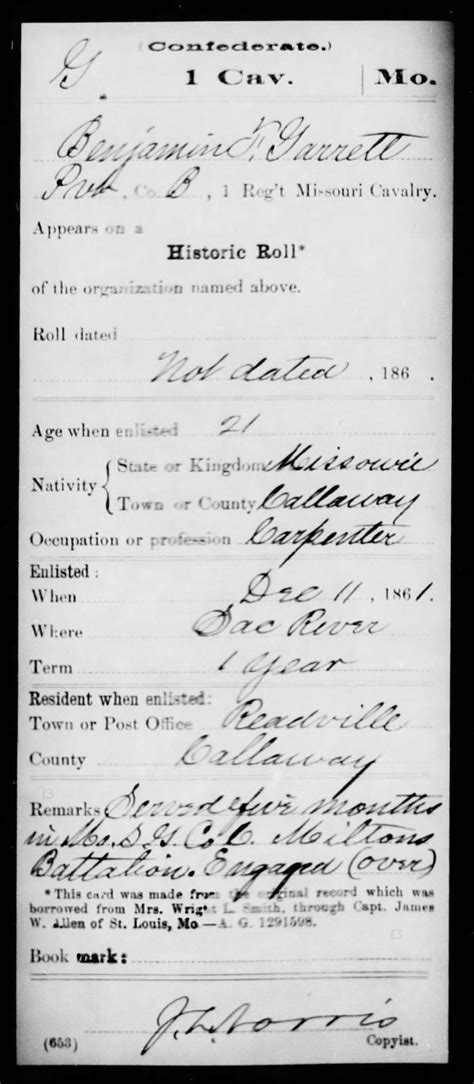 (Confederate.)
G 1 Cav. Mo.
Benjamin F. Garrett
Pvt, Co. B, 1 Reg't Missouri Cavalry.
Appears on a
Historic Roll*
of the organization named above.
Roll dated
Not dated, 186 .
Age when enlisted 21
Nativity { State or Kingdom Missouri
Town or County Callaway
Occupation or profession Carpenter
Enlisted:
When Dec 11, 1861.
Where Sac River
Term 1 year
Resident when enlisted:
Town or Post Office Readville
County Callaway
13
Remarks Served five months
in Mo. S. G. Co. C. Miltons
Battalion. Engaged (over)
*This card was made from the original record which was
borrowed from Mrs. Wright L. Smith, through Capt. James
W. Allen of St. Louis, Mo—A. G. 1291598.
13
Book mark:
Norris
(653) Copyist.